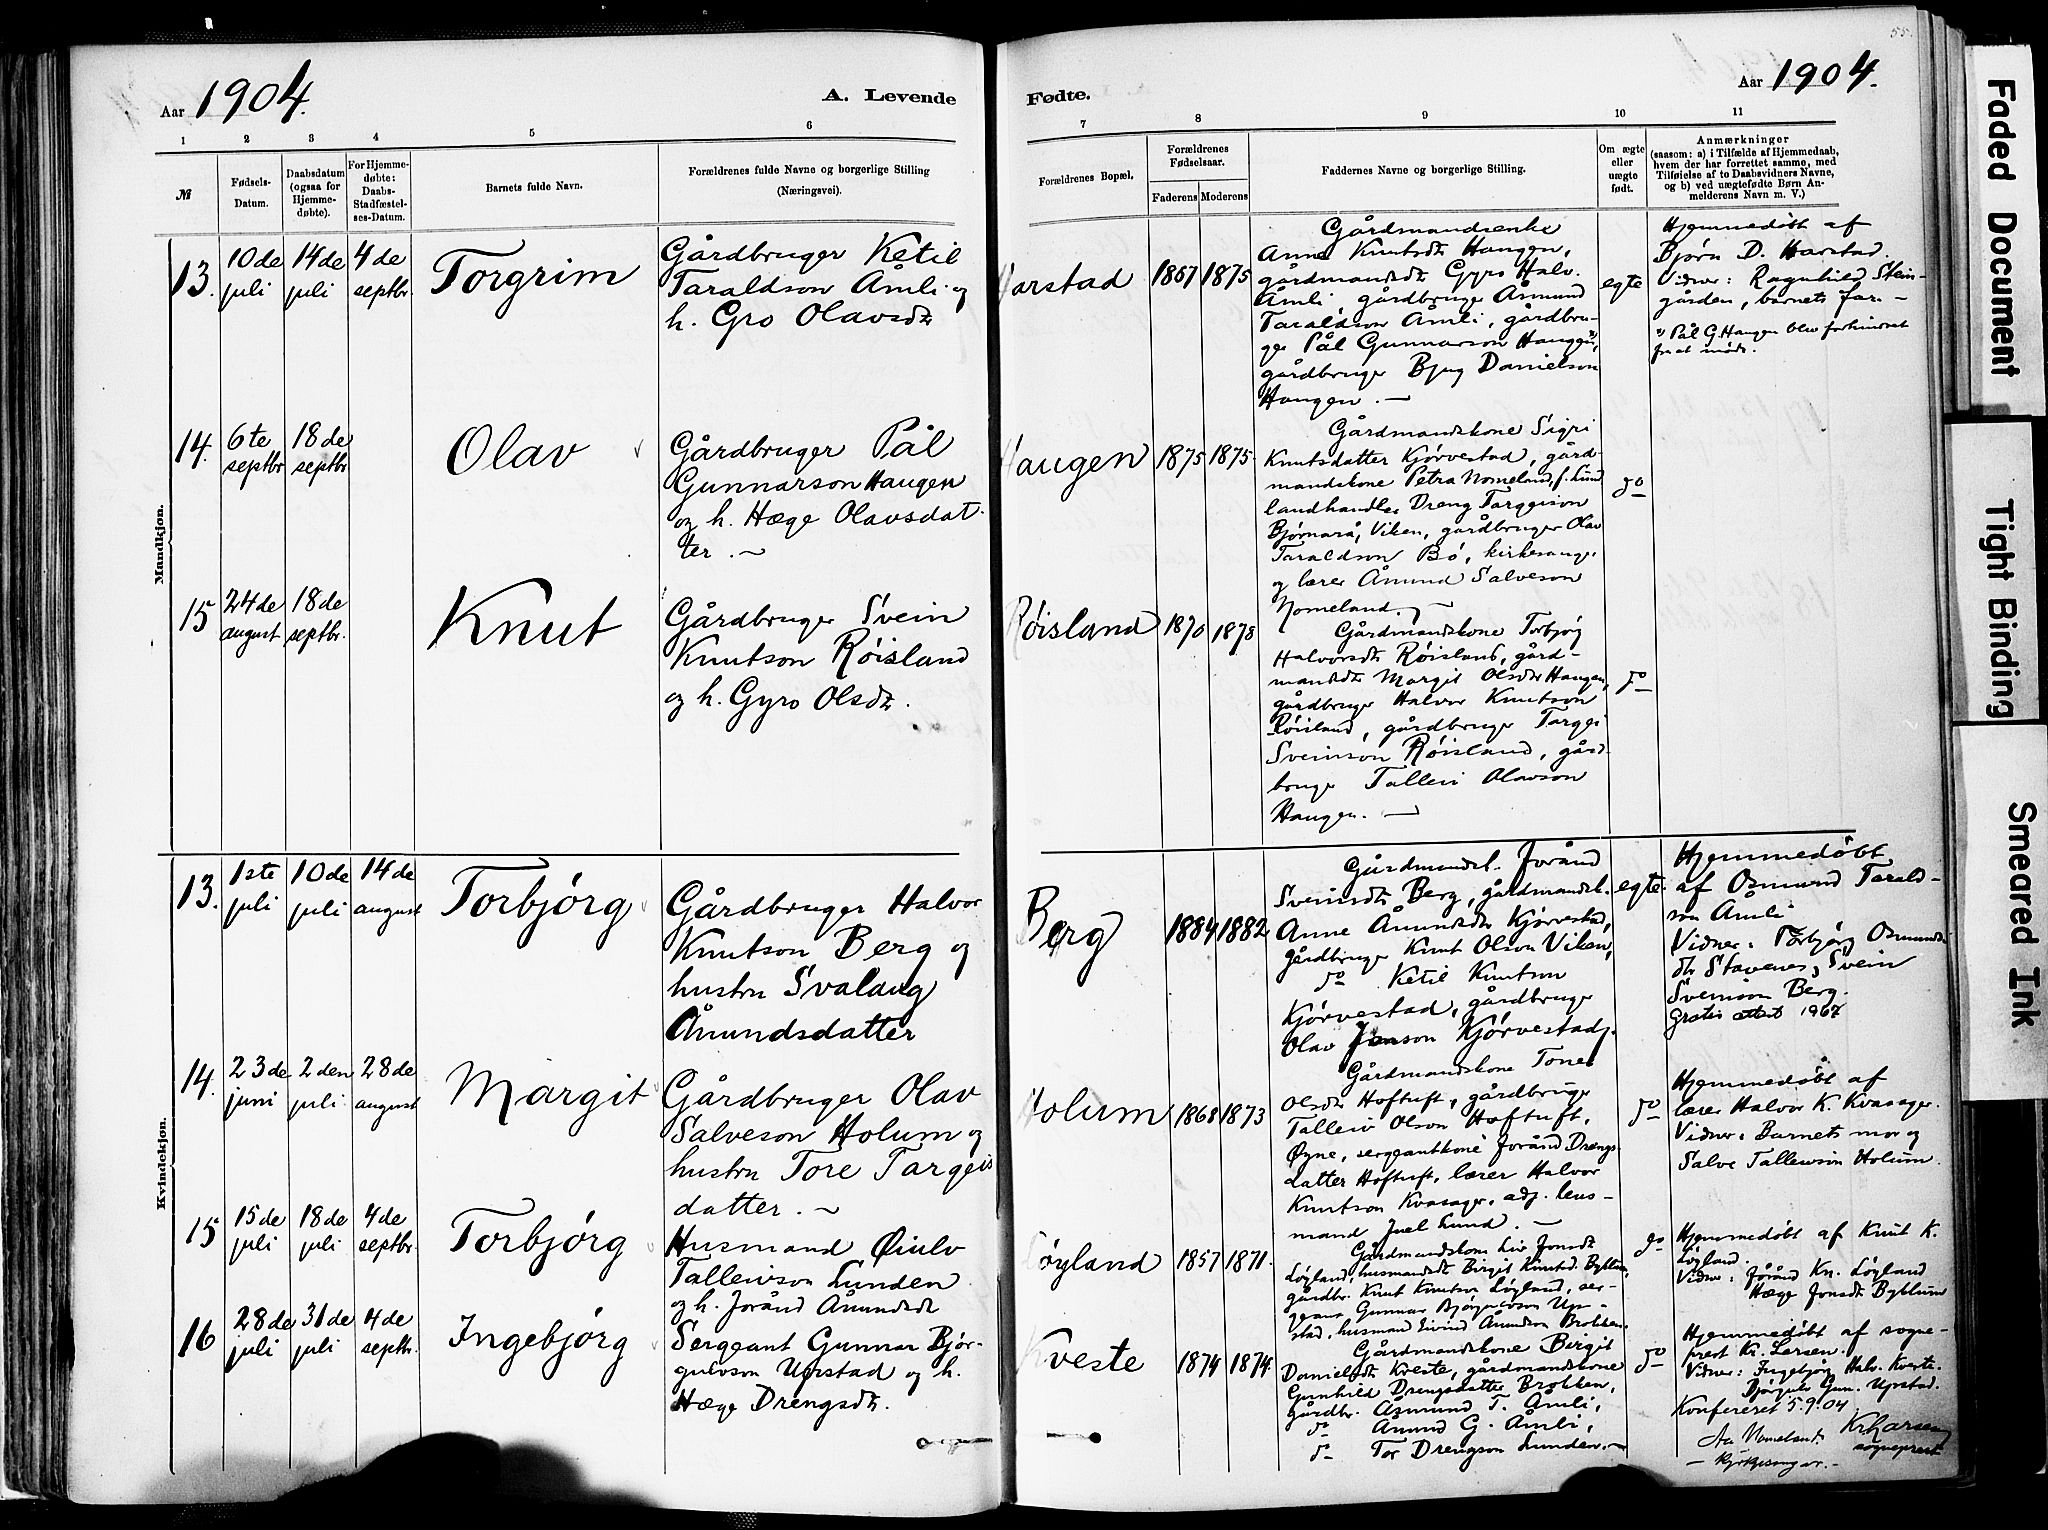 55.
Aar 1904.
A. Levende
Fødte.
Aar 1904.
1 2 3 4 5 6 7 8 9 10 11
№
Fødsels-
Datum.
Daabsdatum
(ogsaa for
Hjemme-
døbte).
For Hjemme-
døbte:
Daabs-
Stadfæstel-
ses-Datum.
Barnets fulde Navn.
Forældrenes fulde Navne og borgerlige Stilling
(Næringsvei).
Forældrenes Bopæl.
Forældrenes
Fødselsaar.
Faderens Moderens
Faddernes Navne og borgerlige Stilling.
Om ægte
eller
uægte
født.
Anmærkninger
(saasom: a) i Tilfælde af Hjemmedaab,
hvem der har forrettet samme, med
Tilføielse af to Daabsvidners Navne,
og b) ved uægtefødte Børn An-
melderens Navn m. V.)
Mandkjøn.
13. 10de juli 14de juli 4de septbr.
Torgrim
Gårdbruger Ketil
Taraldson Åmli og
h. Gro Olavsdt
Harstad 1867 1875
Gårdmandsenke
Anne Knutsdt Haugen,
gårdmandsdt Gyro Halv.
Åmli, gårdbruger Åsmund
Taraldson Åmli, gårdbru-
ger Pål Gunnarson Haugen,
gårdbruger Bjug Danielson
Haugen. —
egte
Hjemmedøbt af
Bjørn D. Harstad.
Vidner: Ragnhild Stein-
gården, barnets far. —
Pål G. Haugen blev forhindret
fra at møde.
14. 6te septbr 18de septbr
Olav
Gårdbruger Pål
Gunnarson Haugen
og h. Hæge Olavsdat-
ter. —
Haugen 1875 1875
Gårdmandskone Sigri
Knutsdatter Kjørvestad, gård-
mandskone Petra Nomeland, f. Lund
landhandler Dreng Targeison
Bjørnarå, Viken, gårdbruger Olav
Taraldson Bø, kirkesanger
og lærer Åmund Salveson
Nomeland. —
do
15 24de august 18de septbr.
Knut
Gårdbruger Svein
Knutson Røisland
og h. Gyro Olsdt.
Røisland 1870 1878
Gårdmandskone Torbjøg
Halvorsdt Røisland, gård-
mandsdt Margit Olsdtr Haugen,
gårdbruger Halvor Knutson
Røisland, gårdbruger Targei
Sveinson Røisland, gård-
bruger Talleiv Olavson
Haugen. —
do
Kvindekjøn.
13. 1ste juli 10de juli 14de august
Torbjørg
Gårdbruger Halvor
Knutson Berg og
hustru Svalaug
Åmundsdatter
Berg 1884 1882
Gårdmandsk. Jorånd
Sveinsdt Berg, gårdmandsk.
Anne Åmundsdt Kjørvestad,
gårdbruger Knut Olson Viken,
do Ketil Knutson
Kjørvestad, gårdbruger
Olav Jonson Kjørvestad.
egte.
Hjemmedøbt
af Osmund Tarald-
son Åmli
Vidner: Torbjørg Osmunds-
dtr Stavenes, Svein
Sveinson Berg.
Gratis attest 1967
14. 23de juni 2den juli 28de august
Margit
Gårdbruger Olav
Salveson Holum og
hustru Tore Targeis
datter. —
Holum 1868 1873
Gårdmandskone Tone
Olsdt Hoftuft, gårdbruger
Talleiv Olson Hoftuft,
Øyne, sergeantkone Jorånd Drengs-
datter Hoftuft, lærer Halvor
Knutson Kvasager, adj. lens-
mand Juel Lund. —
do
Hjemmedøbt af
lærer Halvor K. Kvasager.
Vidner: Barnets mor og
Salve Talleivson Holum.
15 15de juli 18de juli 4de septbr
Torbjørg
Husmand Øiulv
Talleivson Lunden
og h. Jorånd Åmundsdt
Løyland 1857 1871.
Gårdmandskone Liv Jonsdt
Løyland, husmandsdt Birgit Knutsd. Byklum,
gårdbr. Knut Knutson Løyland, ser-
geant Gunnar Bjørgulvson Up-
stad, husmand Eivind Åmundson Brokken.
do
Hjemmedøbt af Knut K.
Løyland.
Vidner: Jorånd Kn. Løyland
Hæge Jonsdt Byklum
16 28de juli 31de juli 4de septbr.
Ingebjørg
Sergeant Gunnar Bjør-
gulvson Upstad og h.
Hæge Drengsdt.
Kveste 1874 1874.
Gårdmandskone Birgit
Danielsdt Kveste, gårdmandskone
Gunhild Drengsdatter Brokken,
gårdbr. Åsmund T. Åmli,
do Åmund G. Åmli,
do Tor Drengson Lunden. —
do
Hjemmedøbt af sogne-
prest Kr. Larsen.
Vidner: Ingebjørg Halv. Kveste.
Bjørgulv Gun. Upstad.
Konfereret 5.9.04
Aa Nomeland. Kr Larsen
— kyrkjesongar. — sogneprest
Faded Document
Tight Binding
Smeared Ink